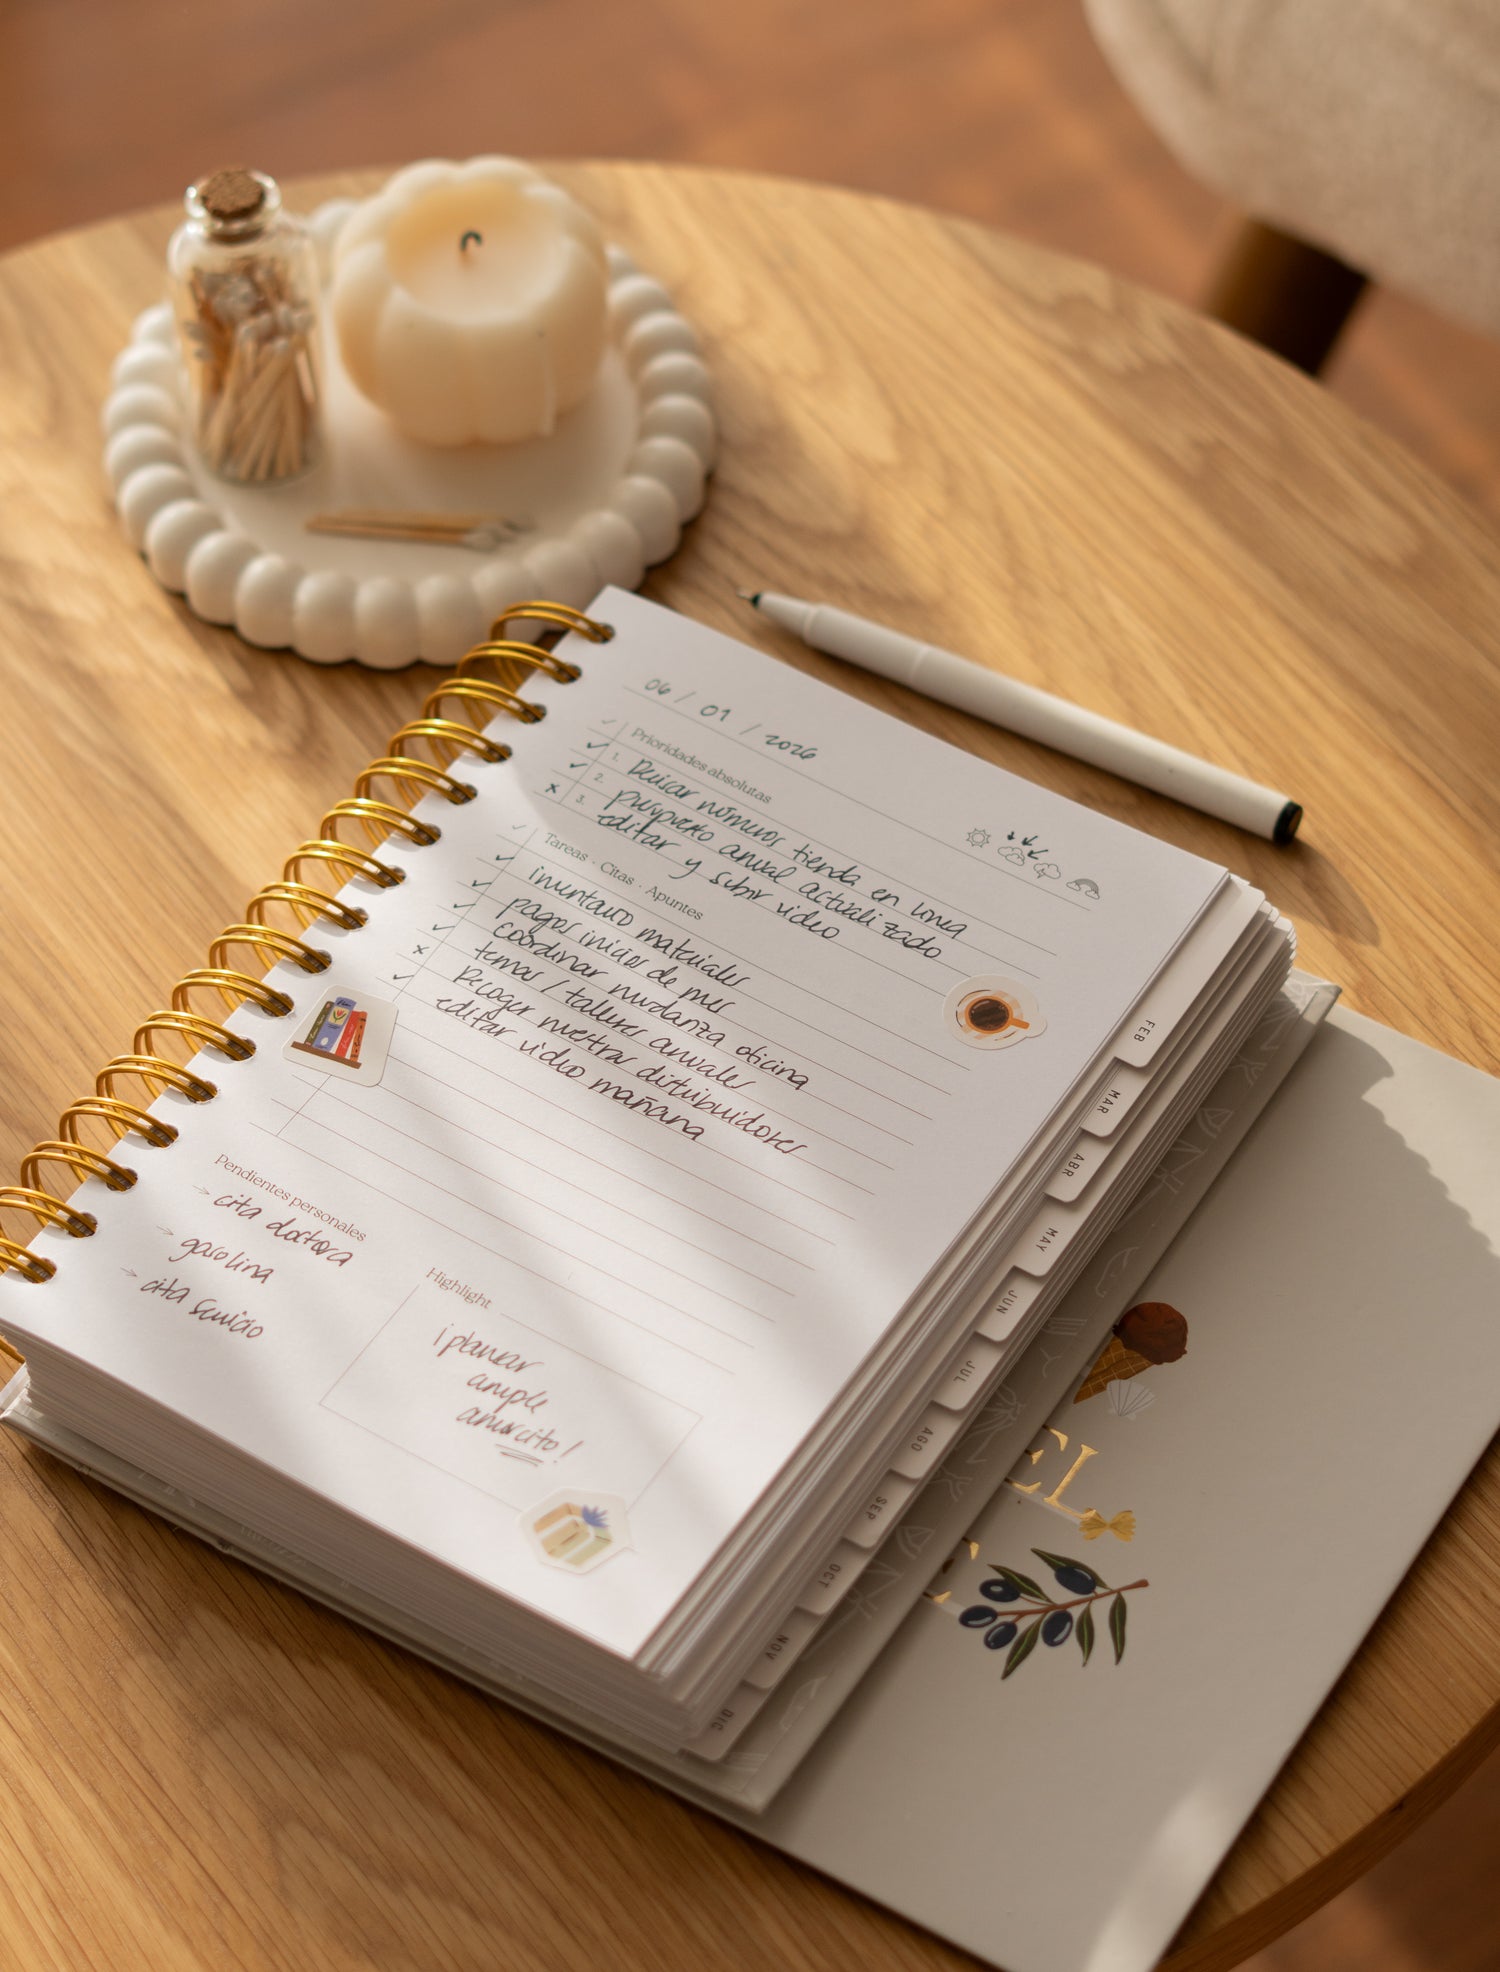 06 / 01 / 2026
Prioridades absolutas
1. Revisar números tienda en línea
2. presupuesto anual actualizado
3. editar y subir video
Tareas · Citas · Apuntes
inventario materiales
pagos inicios de mes
coordinar mudanza oficina
temas / talleres anuales
Recoger muestras distribuidores
editar video mañana
Pendientes personales
cita doctora
gasolina
cita servicio
Highlight
¡planear
cumple
amorcito!
FEB
MAR
ABR
MAY
JUN
JUL
AGO
SEP
OCT
NOV
DIC
EL